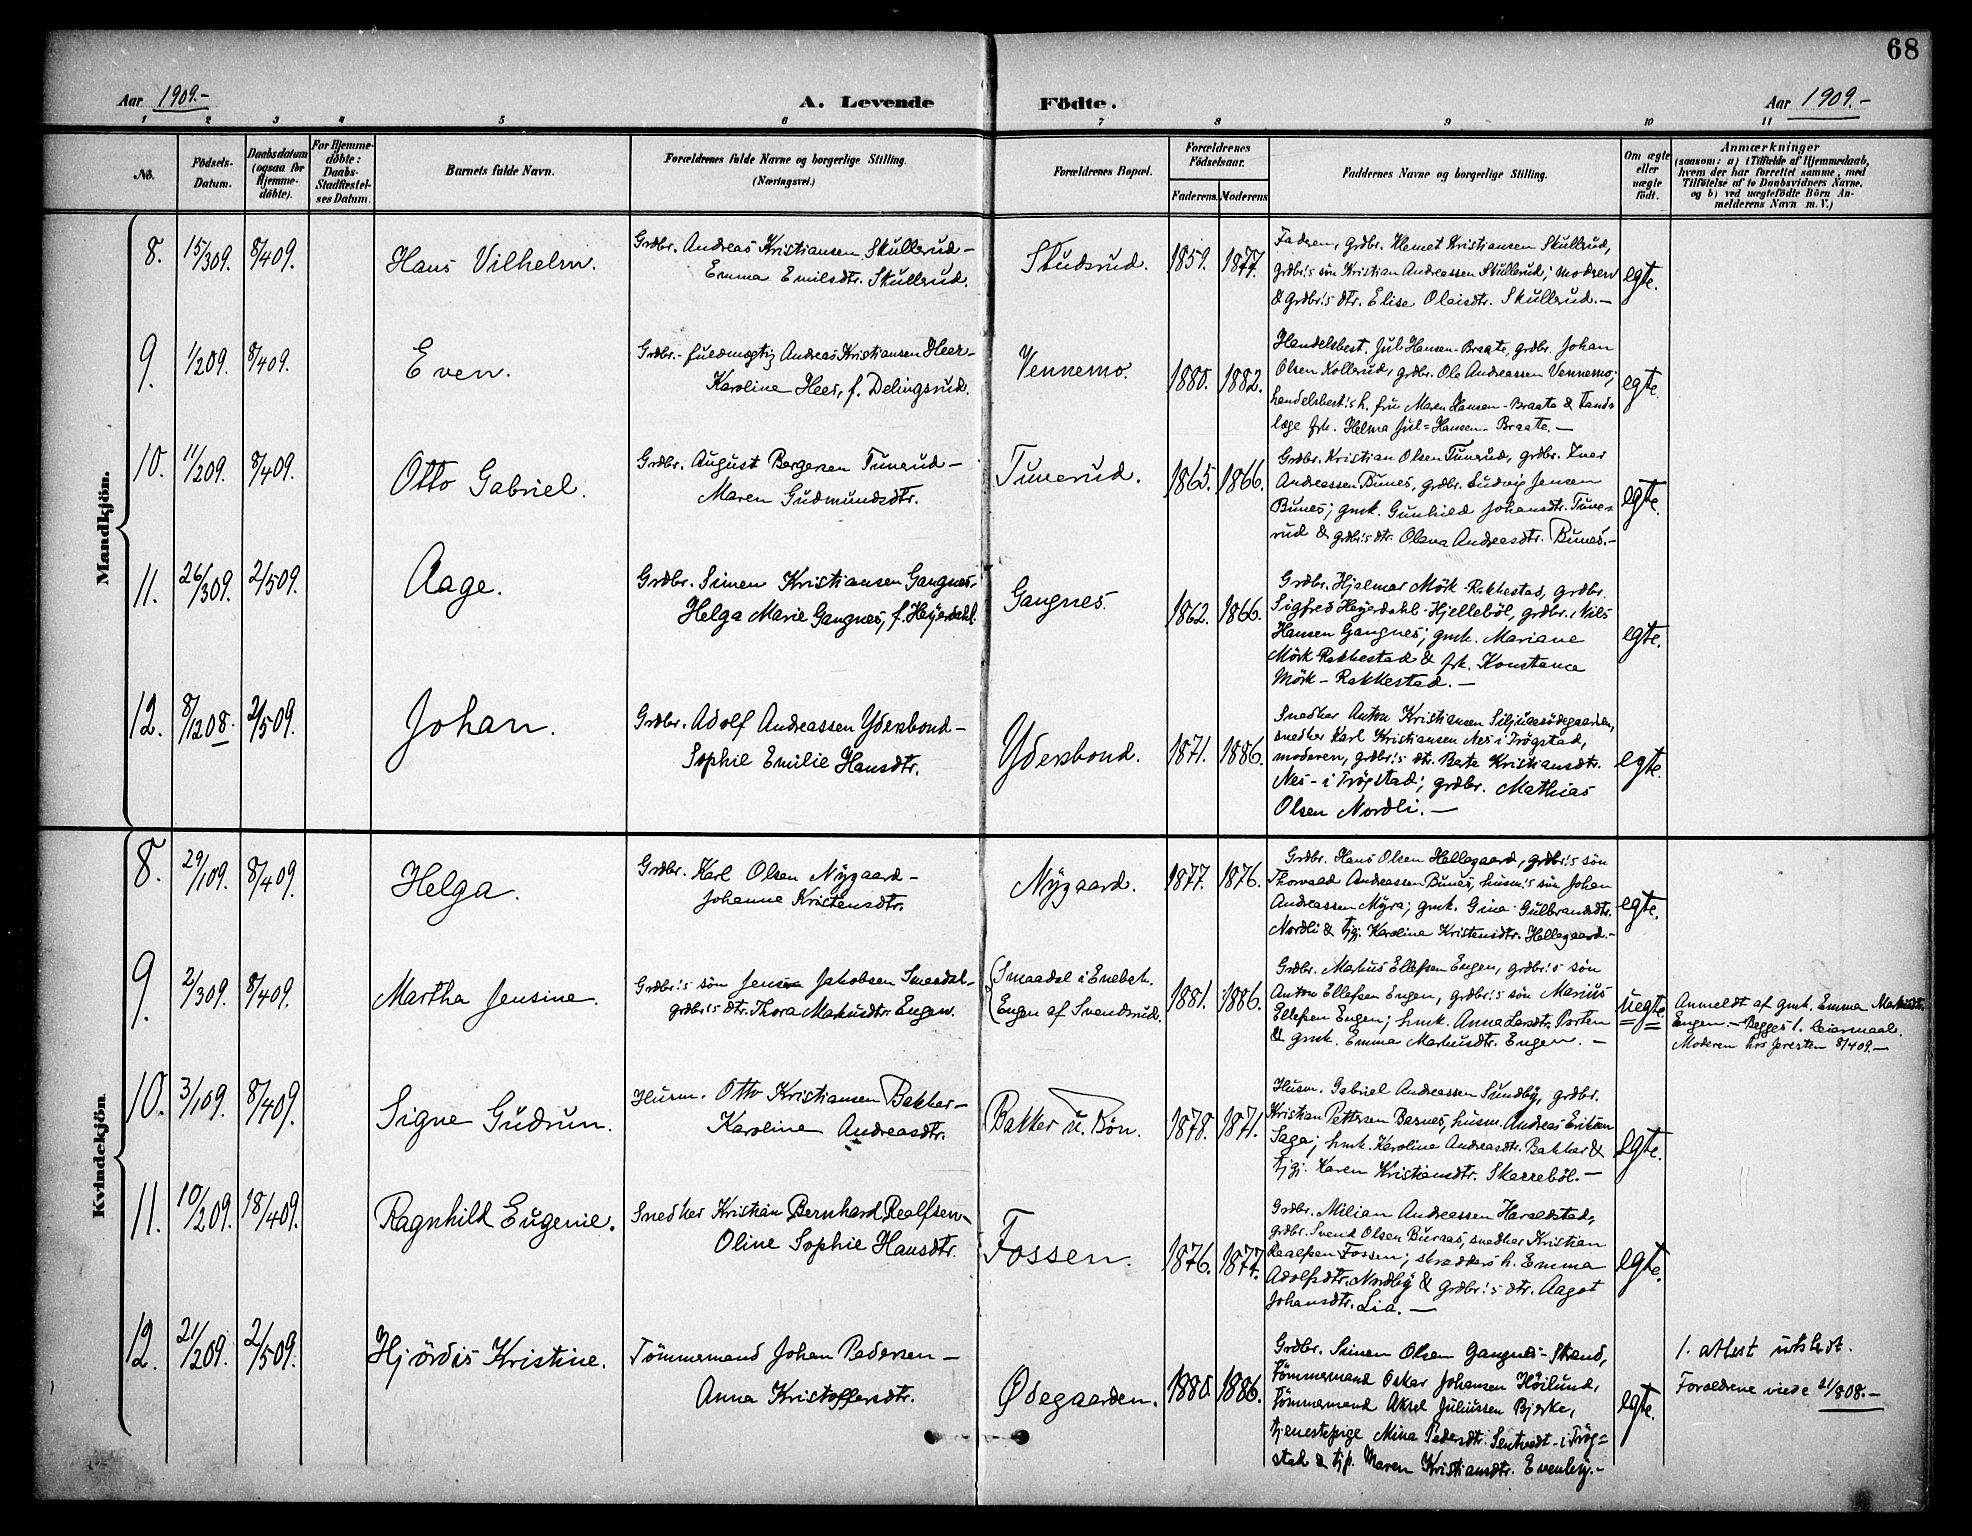 68
Aar 1909.-
A. Levende
Födte.
Aar 1909.-
1 2 3 4 5 6 7 8 9 10 11
No.
Födsels-
Datum.
Daabsdatum
(ogsaa for
Hjemme-
døbte).
For Hjemme-
døbte:
Daabs-
Stadfæstel-
ses Datum.
Barnets fulde Navn.
Forældrenes fulde Navne og borgerlige Stilling.
(Næringsvei.)
Forældrenes Bopæl.
Forældrenes
Födselsaar.
Faderens.
Moderens
Faddernes Navne og borgerlige Stilling.
Om ægte
eller
uægte
født.
Anmærkninger
(saasom: a) i Tilfælde af Hjemmedaab,
hvem der har forrettet samme, med
Tilföielse af to Daabsvidners Navne.
og b) ved uægtefödte Börn An-
melderens Navn m. V.)
Mandkjön.
8.
15/309.
8/409.
Hans Vilhelm.
Grdbr. Andreas Kristiansen Skullerud-
Emma Emilsdtr. Skullrud.
Skudsrud.
1859.
1877.
Faderen, grdbr. Klemet Kristiansen Skullrud,
grdbr!s sön Kristian Andreassen Skullerud; moderen
& grdbr!s dtr. Elise Olaisdtr. Skullrud.-
egte.
9.
1/209.
8/409.
Even.
Grdbr.- fuldmægtig Andreas Kristiansen Heer-
Karoline Heer, f. Delingsrud.
Vennemo.
1880.
1882.
Handelsbest. Jul Hansen-Braate, grdbr. Johan
Olsen Kollerud, grdbr. Ole Andreassen Vennemo;
handelsbest!s h. fru Maren Hansen-Braate & Tand-
læge frk. Helma Jul-Hansen-Braate.-
egte.
10.
11/209.
8/409.
Otto Gabriel.
Grdbr. August Bergersen Tunerud-
Maren Gudmundsdtr.
Tunerud.
1865.
1866.
Grdbr. Kristian Olsen Tunerud, grdbr. Iver
Andreassen Bunes, grdbr. Ludvig Jensen
Bunes; gmk. Gunhild Johansdtr. Tune-
rud & grdbr!s dtr. Olava Andreasdtr. Bunes.-
egte.
11.
26/309.
2/509.
Aage.
Grdbr. Simen Kristiansen Gangnes-
Helga Marie Gangnes, f. Heyerdahl.
Gangnes.
1862.
1866.
Grdbr. Hjalmar Mörk-Rakkestad, grdbr.
Sigfred Heyerdahl-Hjelleböl, grdbr. Nils
Hansen Gangnes; gmk. Mariane
Mörk Rakkestad & frk. Konstance
Mörk-Rakkestad.-
egte.
12.
8/1208.
2/509.
Johan.
Grdbr. Adolf Andreassen Ydersbond-
Sophie Emilie Hansdtr.
Ydersbond.
1871.
1886.
Snedker Anton Kristiansen
snedker Karl Kristiansen Nes i Trögstad,
moderen, grdbr!s dtr. Berte Kristiansdtr.
Nes- i Trögstad; grdbr. Mathias
Olsen Nordli.-
egte.
Kvindekjön
8.
29/109.
8/409.
Helga.
Grdbr. Karl Olsen Nygaard-
Johanne Kristensdtr.
Nygaard.
1877.
1876.
Grdbr. Hans Olsen Hellegaard, grdbr!s sön
Thorvald Andreassen Bunes, husm!s sön Johan
Andreassen Myra; gmk. Gina Gulbrandsdtr.
Nordli & tjg. Karoline Kristensdtr. Hellegaard.-
egte.
9.
2/309.
8/409.
Martha Jensine.
Grdbr!s sön Jens Jakobsen Smaadal-
grdbr!s dtr. Thora Markusdtr. Engen.
Smaadal i Enebak.
Engen af Svendsrud.
1881.
1886.
Grdbr. Markus Ellefsen Engen, grdbr!s sön
Anton Ellefsen Engen, grdbr!s sön Marius
Ellefsen Engen; hmk. Anna Larsdtr. Parten
& gmk. Emma Markusdtr. Engen.-
uegte
Anmeldt af gmk. Emma Markusdtr.
Engen.- Begges 1. leiermaal.
Moderen hos presten 8/409.-
10.
3/109.
8/409.
Signe Gudrun.
Husm. Otto Kristiansen Bakker-
Karoline Andreasdtr.
Bakker u. Bön.
1878.
1871.
Husm. Gabriel Andreassen Sundby, grdbr.
Kristian Pettersen Barnes, husm. Andreas Eriksen
Saga; hmk. Karoline Andreasdtr. Bakker &
tjg. Karen Kristiansdtr. Skarreböl.-
egte.
11.
10/209.
18/409.
Ragnhild Eugenie.
Snedker Kristian Bernhard Realfsen-
Oline Sophie Hansdtr.
Fossen.
1876.
1877.
Grdbr. Milian Andreassen Haraldstad,
grdbr. Svend Olsen Buraas, snedker Kristian
Realfsen Fossen; skrædders h. Emma
Adolfsdtr. Nordby & grdbr!s dtr. Aagot
Johansdtr. Lia.-
egte.
12.
21/209.
2/509.
Hjördis Kristine.
Tömmermand Johan Pedersen-
Anna Kristoffersdtr.
Ødegaarden.
1880.
1886.
Grdbr. Simen Olsen Gangnes-Strand,
Tömmermand Oskar Johansen Höilund,
Tömmermand Aksel Juliussen Bjerke,
tjenestepige Mina Pedersdtr. Sentvedt- i Trög-
stad & tjp. Maren Kristiansdtr. Evenby.-
egte.
1. attest utstedt.
Forældrene viede 2/808.-